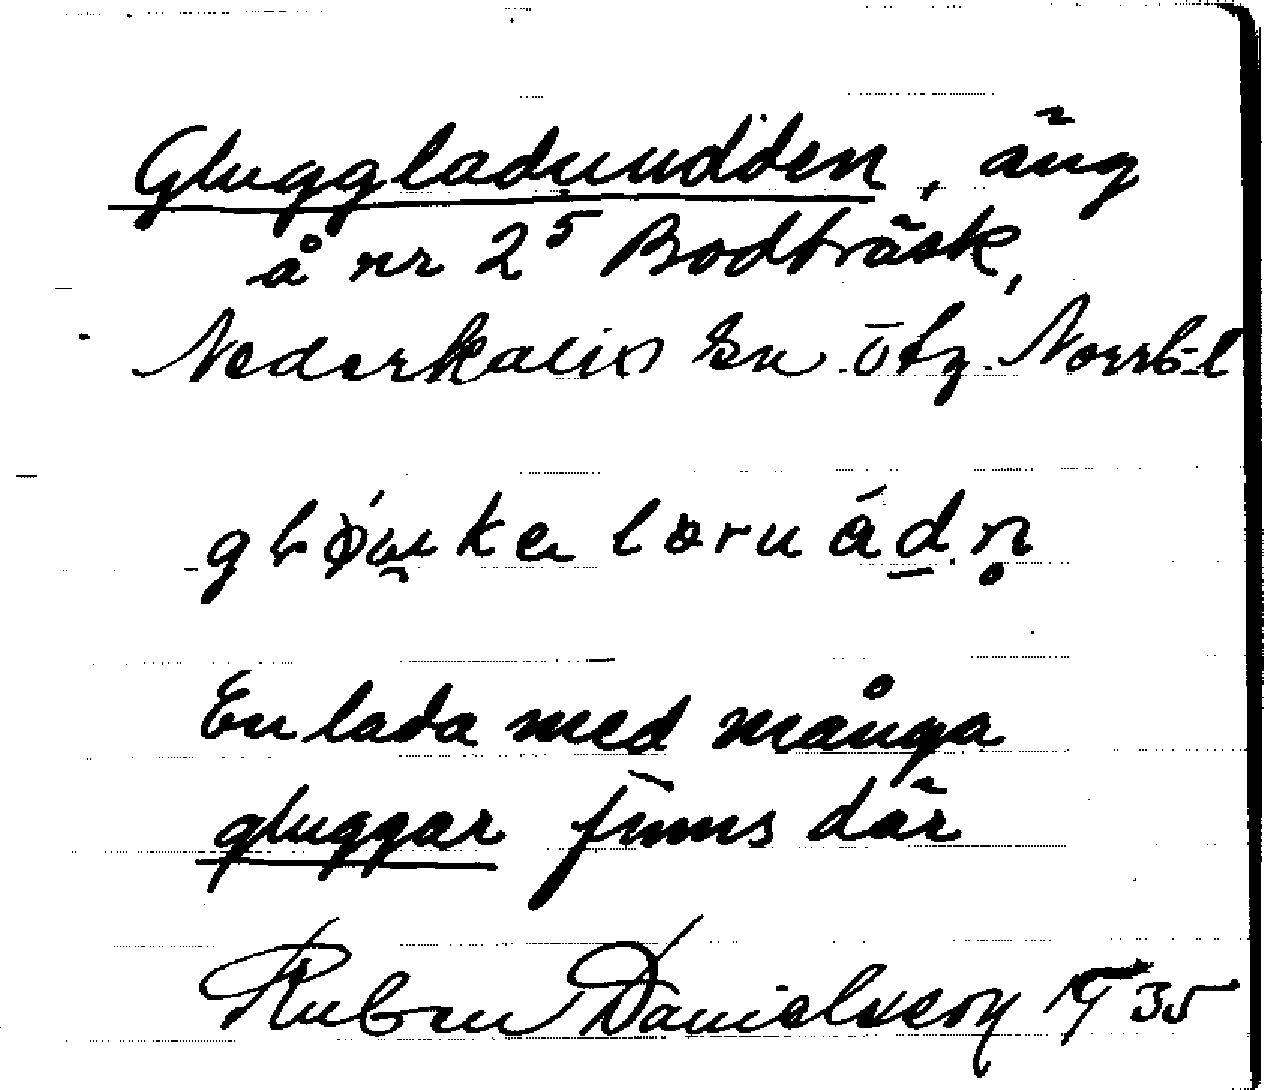 Gluggladuudden, äng
å nr 2⁵ Bodträsk,
Nederkalix sn Ö tg. Norrb. l
En lada med många
gluggar finns där
Ruben Danielsson 19 35